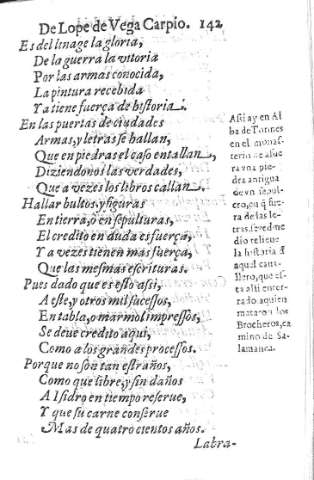 De Lope de Vega Carpio. 142
Es del linage la gloria,
De la guerra la vitoria
Por las armas conocida,
La pintura recebida
Y a tiene fuerça de historia.
En las puertas de ciudades
Armas, y letras se hallan,
Que en piedras el caso entallan,
Diziendonos las verdades,
Que a vezes los libros callan.
Hallar bultos, y figuras
En tierra, ò en sepulturas,
El credito en duda esfuerça,
Y a vezes tienen mas fuerça,
Que las mesmas escrituras.
Pues dado que es esto assi,
A este, y otros mil sucessos,
En tabla, o marmol impressos,
Se deue credito aqui,
Como a los grandes processos.
Porque no son tan estraños,
Como que libre, y sin daños
A Isidro en tiempo reserue,
Y que su carne conserue
Mas de quatro cientos años.
Labra-
Assi ay en Al
ba de Tormes
en el monas-
terio de afue
ra vna pie-
dra antigua
de vn sepul-
cro, en q̃ fue
ra de las le-
tras,
dio relieue
la historia d̃
aquel caua-
llero, que es-
ta alli enter-
rado, a quien
mataron los
Brocheros, ca
mino de Sa-
lamanca.